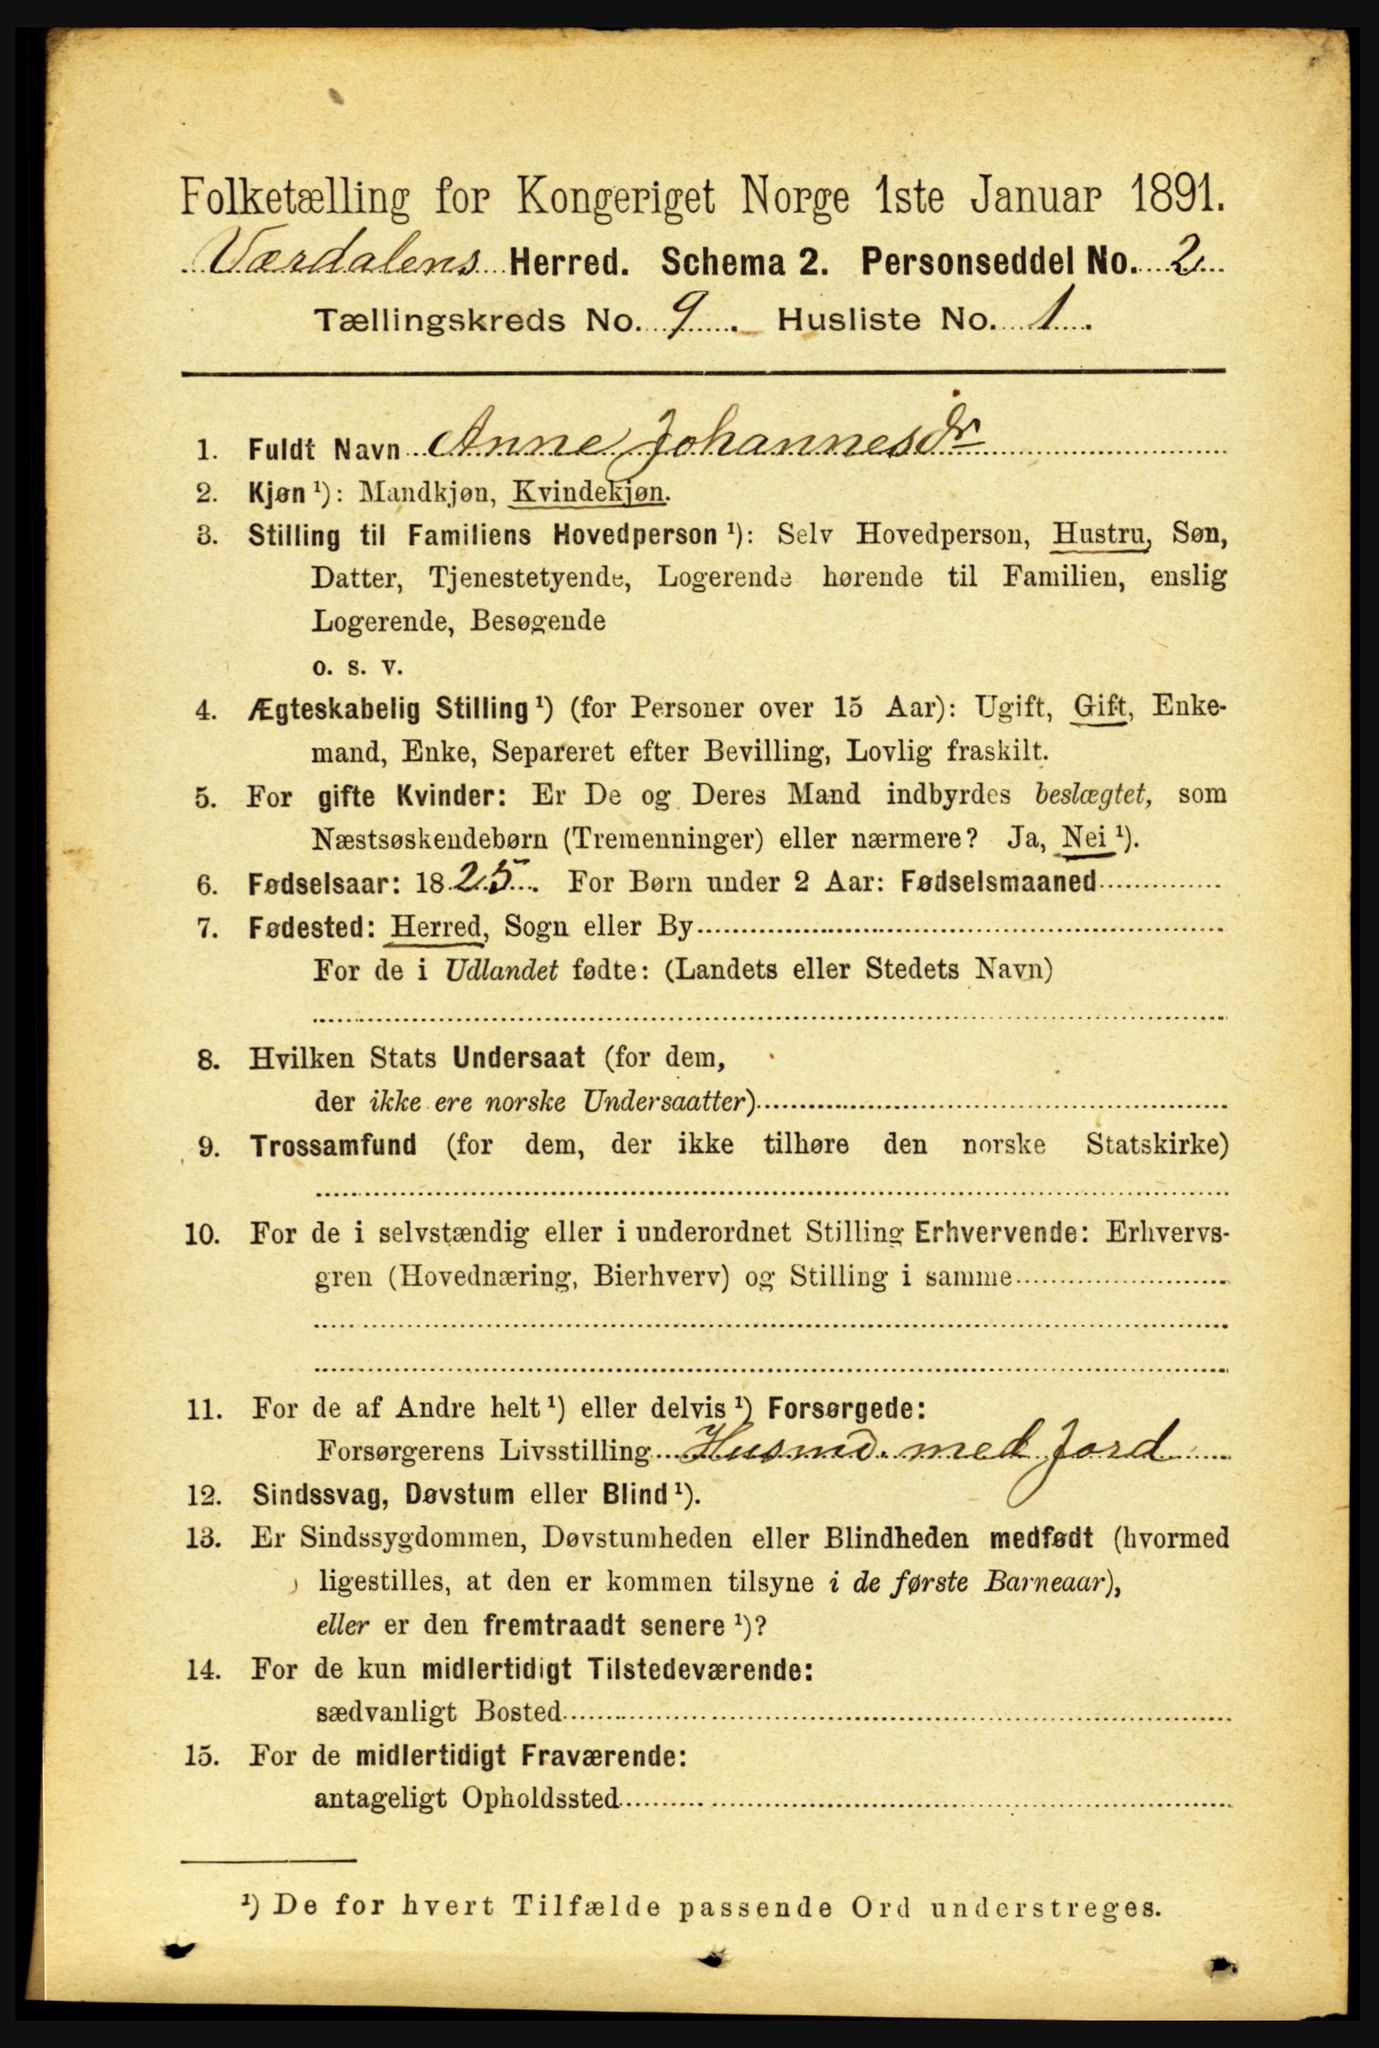 Folketælling for Kongeriget Norge 1ste Januar 1891.
Værdalens Herred. Schema 2. Personseddel No. 2
Tællingskreds No. 9. Husliste No. 1.
1. Fuldt Navn Anne Johannesdr
2. Kjøn ¹): Mandkjøn, Kvindekjøn.
3. Stilling til Familiens Hovedperson ¹): Selv Hovedperson, Hustru, Søn,
Datter, Tjenestetyende, Logerende hørende til Familien, enslig
Logerende, Besøgende
o. s. v.
4. Ægteskabelig Stilling ¹) (for Personer over 15 Aar): Ugift, Gift, Enke-
mand, Enke, Separeret efter Bevilling, Lovlig fraskilt.
5. For gifte Kvinder: Er De og Deres Mand indbyrdes beslægtet, som
Næstsøskendebørn (Tremenninger) eller nærmere? Ja, Nei ¹).
6. Fødselsaar: 1825. For Børn under 2 Aar: Fødselsmaaned
7. Fødested: Herred, Sogn eller By
For de i Udlandet fødte: (Landets eller Stedets Navn)
8. Hvilken Stats Undersaat (for dem,
der ikke ere norske Undersaatter)
9. Trossamfund (for dem, der ikke tilhøre den norske Statskirke)
10. For de i selvstændig eller i underordnet Stilling Erhvervende: Erhvervs-
gren (Hovednæring, Bierhverv) og Stilling i samme
11. For de af Andre helt ¹) eller delvis ¹) Forsørgede:
Forsørgerens Livsstilling Husmd. med Jord
12. Sindssvag, Døvstum eller Blind ¹).
13. Er Sindssygdommen, Døvstumheden eller Blindheden medfødt (hvormed
ligestilles, at den er kommen tilsyne i de første Barneaar),
eller er den fremtraadt senere ¹)?
14. For de kun midlertidigt Tilstedeværende:
sædvanligt Bosted
15. For de midlertidigt Fraværende:
antageligt Opholdssted
¹) De for hvert Tilfælde passende Ord understreges.